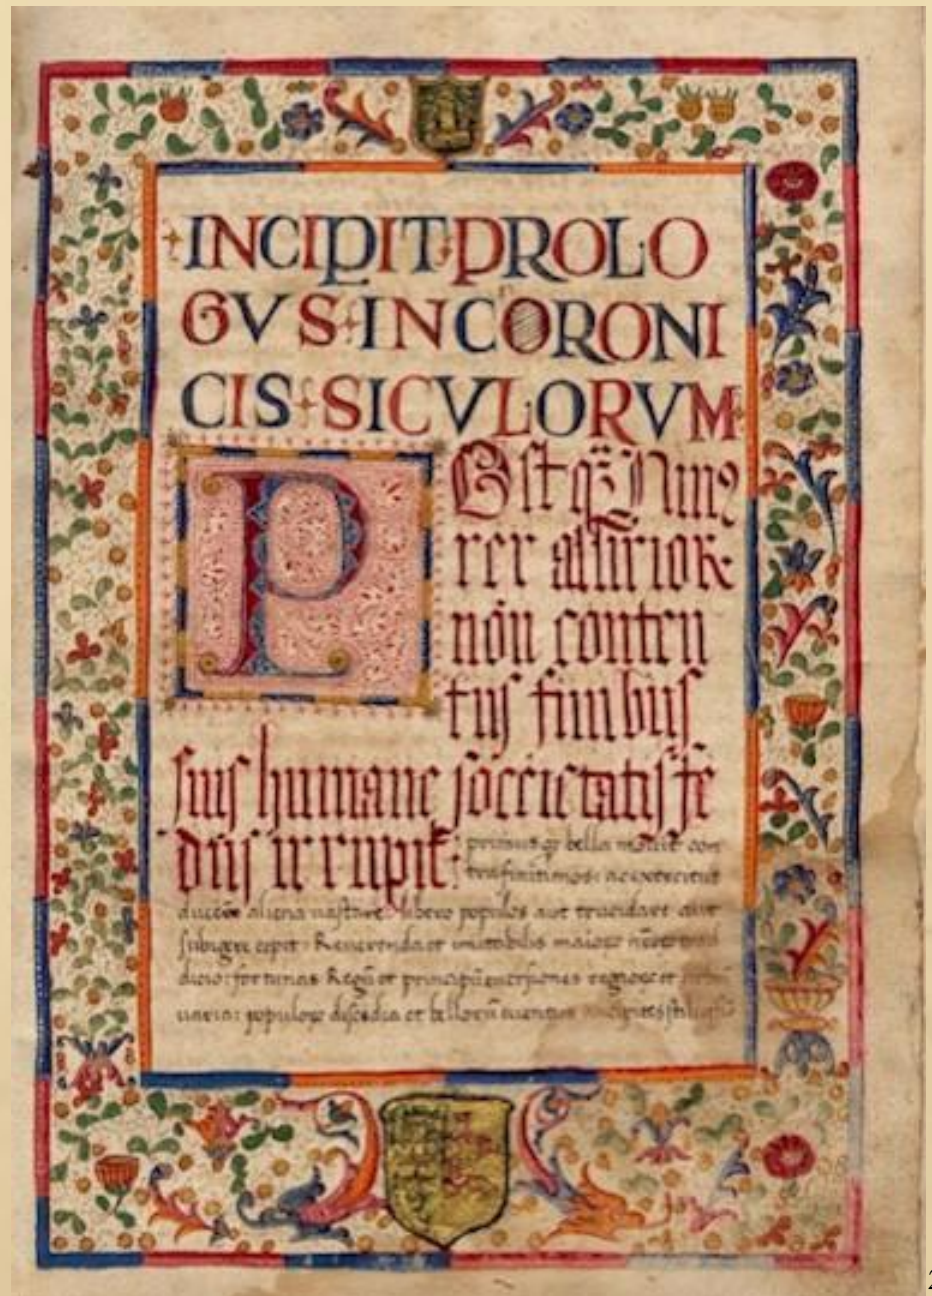 INCIPIT·PROLO
GVS·INCORONI
CIS·SICVLORVM
P Ost q̃ʒ Ninꝰ
rex assirioꝝ
nõn conten
tus finibus
suis humane soccietatis fe
dus irrupit: primusqꝫ bella mouit con
tra finitimos: ac exercitus
ducere aliena uastare: libero populos aut trucidare aut
subigere cepit: Reuerenda et imitabilis maioꝝ
fortunas Regũ et principũ euersiones
uaria: populoꝝ discidia et belloꝝ euentus
2